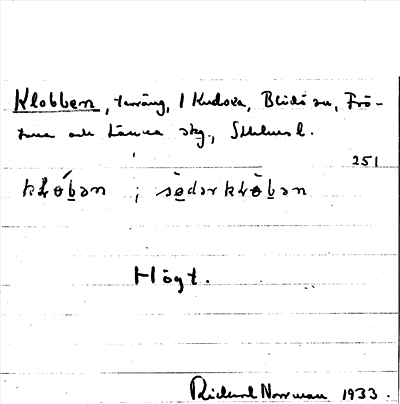 Klobben, terräng, 1 Kudoxa, Blidö sn, Frö-
tuna och Länna skg., Sthlms l.
251
kłòb̲ən ; sø̀dərkłòb̲ən
Högt.
Rickard Norrman 1933.